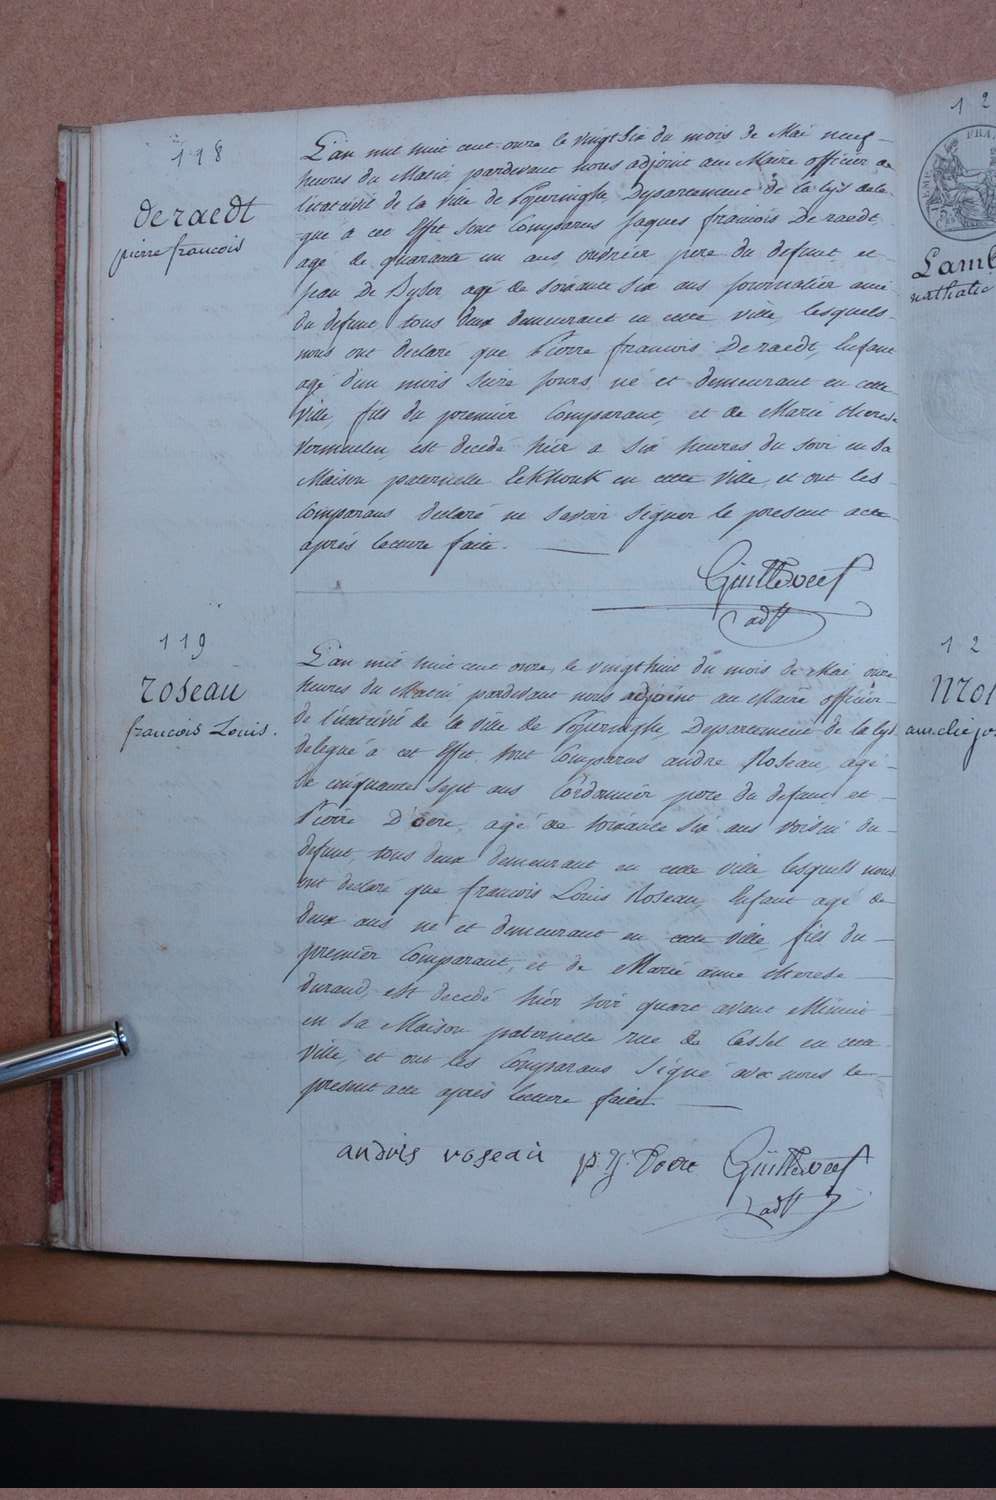 118
deraedt
pierre francois
L'an mil huit cent onze le vingt six du mois de Mai neuf
heures du Matin pardevant nous adjoint au Maire officier de
l'etat civil de la ville de Poperinghe, Departement de la lys dele
gué a cet Effet sont Comparus Jaques francois Deraedt,
agé de quarante un ans ouvrier pere du defunt et
jean De Dyser agé de soixante six ans journalier ami
du defunt, tous deux demeurant en cette ville, lesquels
nous ont declaré que Pierre francois Deraedt, Enfant
agé d'un mois seize jours, né et demeurant en cette
ville, fils du premier Comparant, et de Marie therese
Vermeulen, est decedé hier a six heures du soir en sa
Maison paternelle Eekhouk en cette ville, et ont les
Comparans declaré ne savoir signer le present acte
après lecture faite.
Guilleweef
adjt
119
roseau
francois Louis.
L'an mil huit cent onze, le vingt huit du mois de Mai onze
heures du Matin pardevant nous adjoint au Maire officier
de l'état civil de la ville de Poperinghe, Departement de la lys
delegué a cet Effet sont Comparus andré Roseau, agé
de cinquante sept ans Cordonnier pere du defunt et
Pierre D'overe, agé de soixante six ans voisin du
defunt, tous deux demeurant en cette ville lesquels nous
ont declaré que francois Louis Roseau, Enfant agé de
deux ans né et demeurant en cette ville, fils du
premier Comparant, et de Marie anne therese
durand, est decedé hier soir quart avant Minuit
en sa Maison paternelle rue de Cassel en cette
ville, et ont les Comparans signé avec nous le
present acte après lecture faite.
andris roseau
Guilleweef
adjt
12
FRA
Lamb
nathalie
12